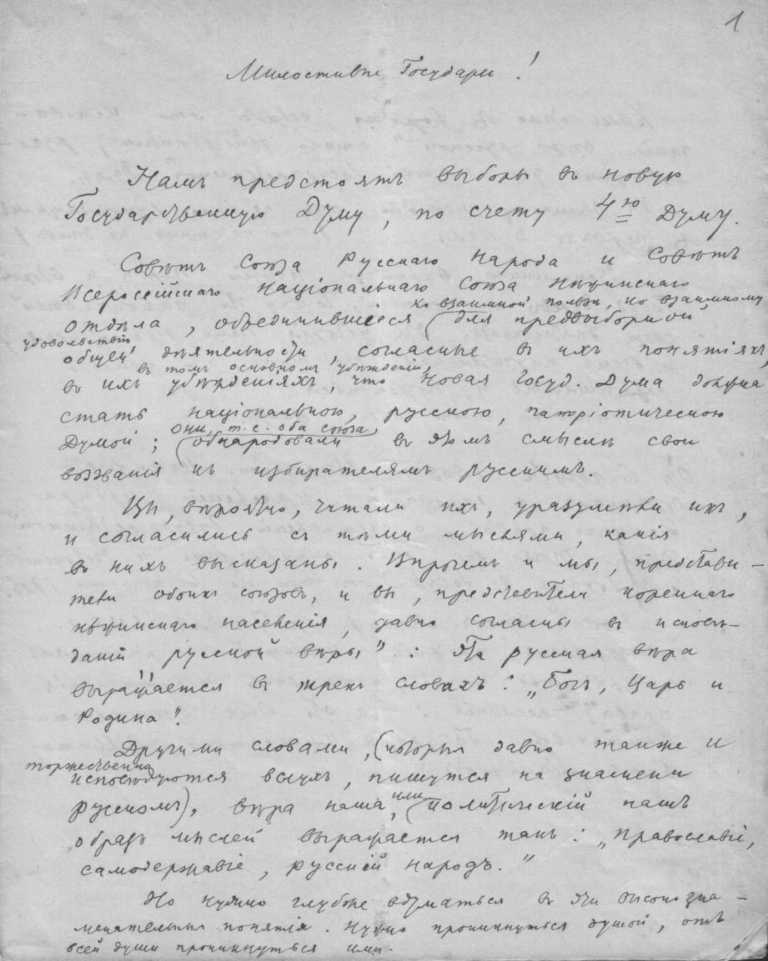 1
Милостивые Государи!
Намъ предстоятъ выборы въ новую
Государственную Думу, по счету 4ю Думу.
Совѣтъ Союза Русскаго Народа и Совѣтъ
Всероссійскаго Національнаго Союза Нѣжинскаго
ко взаимной пользѣ, ко взаимному
отдѣла, объединившіеся (для предвыборной
удовольствію
общей дѣятельности, согласные въ ихъ понятіяхъ,
въ томъ основномъ убѣжденіи,
въ ихъ убѣжденіяхъ, что новая Госуд. Дума должна
стать національною, русскою, патріотическою
они, т.е. оба союза,
Думой; (обнародовали въ этомъ смыслѣ свои
воззванія къ избирателямъ русскимъ.
Вы, вѣроятно, читали ихъ, уразумѣли ихъ,
и согласились съ тѣми мыслями, какія
въ нихъ высказаны. Впрочемъ и мы, представи-
тели обоихъ союзовъ, и вы, представители кореннаго
нѣжинскаго населенія, давно согласны въ исповѣ-
даніи русской вѣры": Эта русская вѣра
выражается въ трехъ словахъ: „Богъ, Царь и
Родина".
Другими словами, (которыя давно также и
торжественно
исповѣдуются всѣми, пишутся на знамени
русскомъ), вѣра наша, или (политическій нашъ
образъ мыслей выражается такъ: „Православіе,
самодержавіе, русскій народъ."
Но нужно глубоко вдуматься въ эти высокозна-
менательныя понятія. Нужно проникнуться душой, отъ
всей души проникнуться ими.